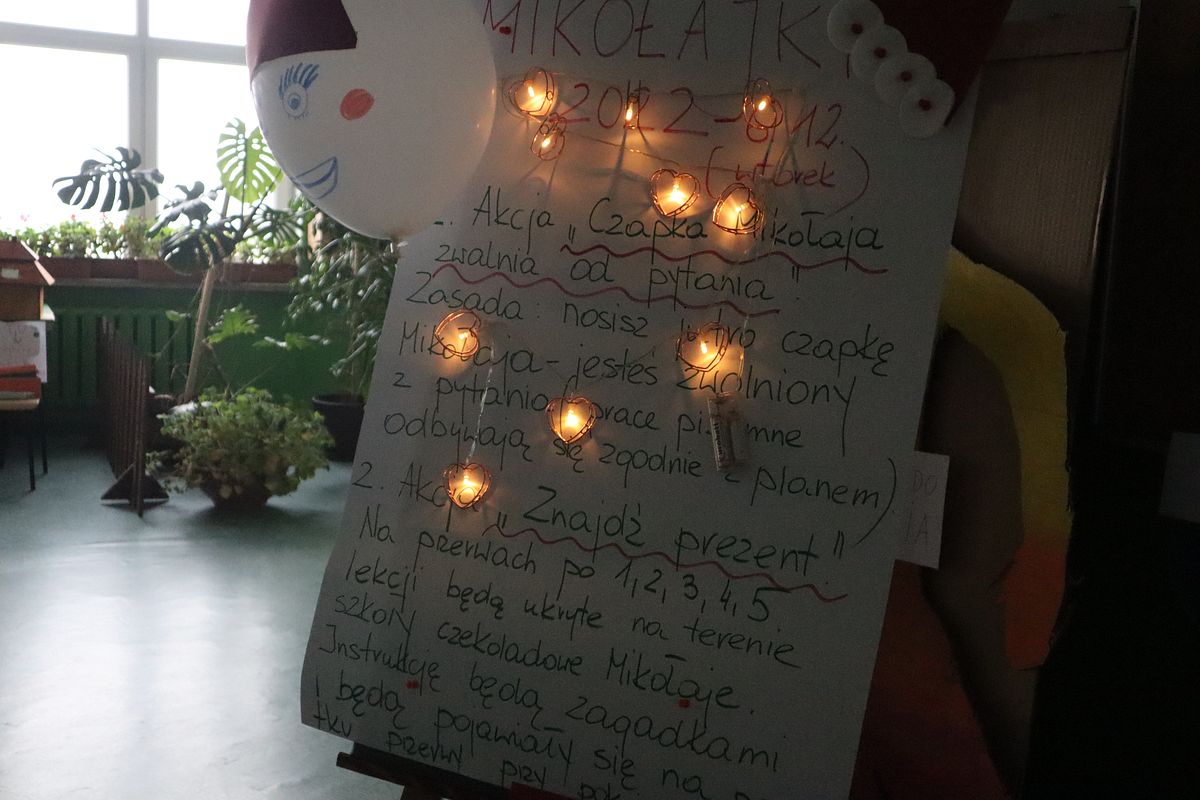 MIKOŁAJKI
2022-6.12.
(wtorek)
- Akcja „Czapka Mikołaja
zwalnia od pytania".
Zasada: nosisz jutro czapkę
Mikołaja - jesteś zwolniony
z pytania (prace pisemne
odbywają się zgodnie z planem).
2. Akcja „Znajdź prezent".
Na przerwach po 1, 2, 3, 4, 5
lekcji będą ukryte na terenie
szkoły czekoladowe Mikołaje.
Instrukcję będą zagadkami
i będą pojawiały się na
tku przerwy przy
DO